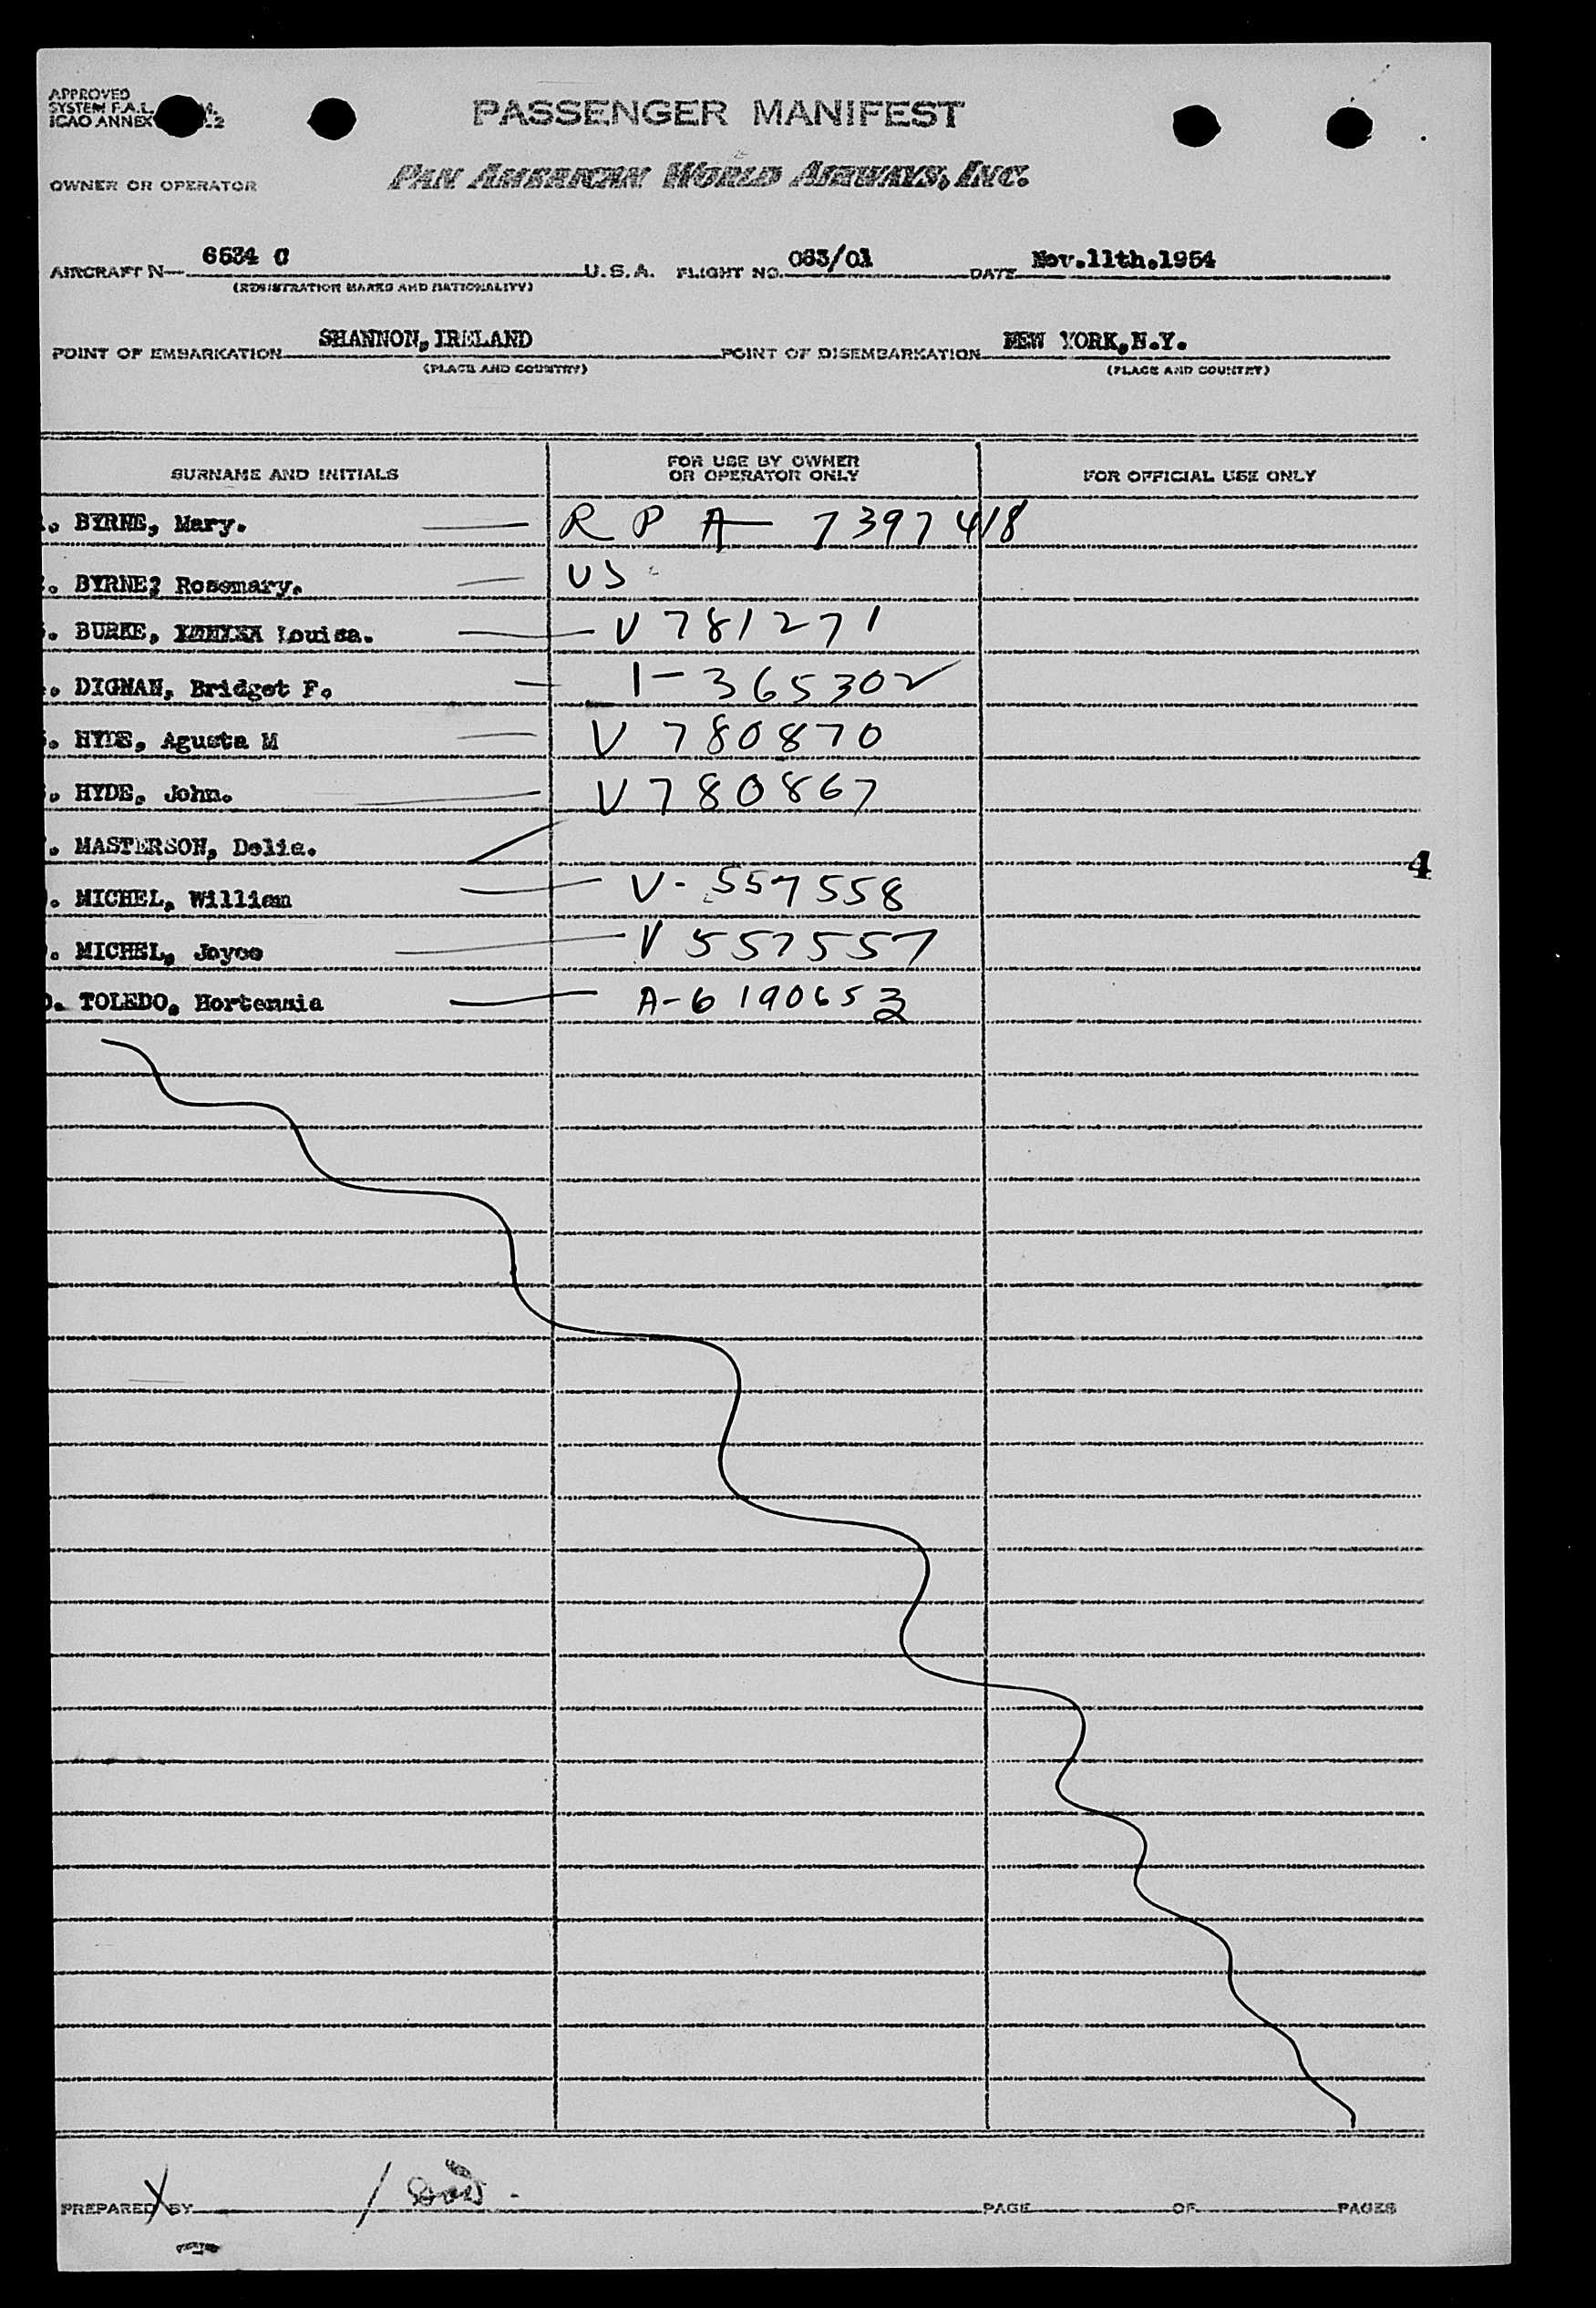 APPROVED
SYSTEM F.A.L. M.
ICAO ANNEX
OWNER OR OPERATOR
PASSENGER MANIFEST
PAN AMERICAN WORLD AIRWAYS, INC.
AIRCRAFT N— 6534 C U.S.A. FLIGHT NO. 063/01 DATE Nov.11th.1954
(REGISTRATION MARKS AND NATIONALITY)
POINT OF EMBARKATION SHANNON, IRELAND POINT OF DISEMBARKATION NEW YORK,N.Y.
(PLACE AND COUNTRY) (PLACE AND COUNTRY)
SURNAME AND INITIALS FOR USE BY OWNER OR OPERATOR ONLY FOR OFFICIAL USE ONLY
. BYRNE, Mary. R P A 7397418
. BYRNE? Rosemary. US
. BURKE, Louisa. V 781271
. DIGNAN, Bridget F. I-365302
. HYDE, Agusta M V 780870
. HYDE, John. V 780867
. MASTERSON, Delia.
4
. MICHEL, William V-557558
. MICHEL, Joyce V 557557
. TOLEDO, Hortensia A-6190653
PREPARED BY PAGE OF PAGES